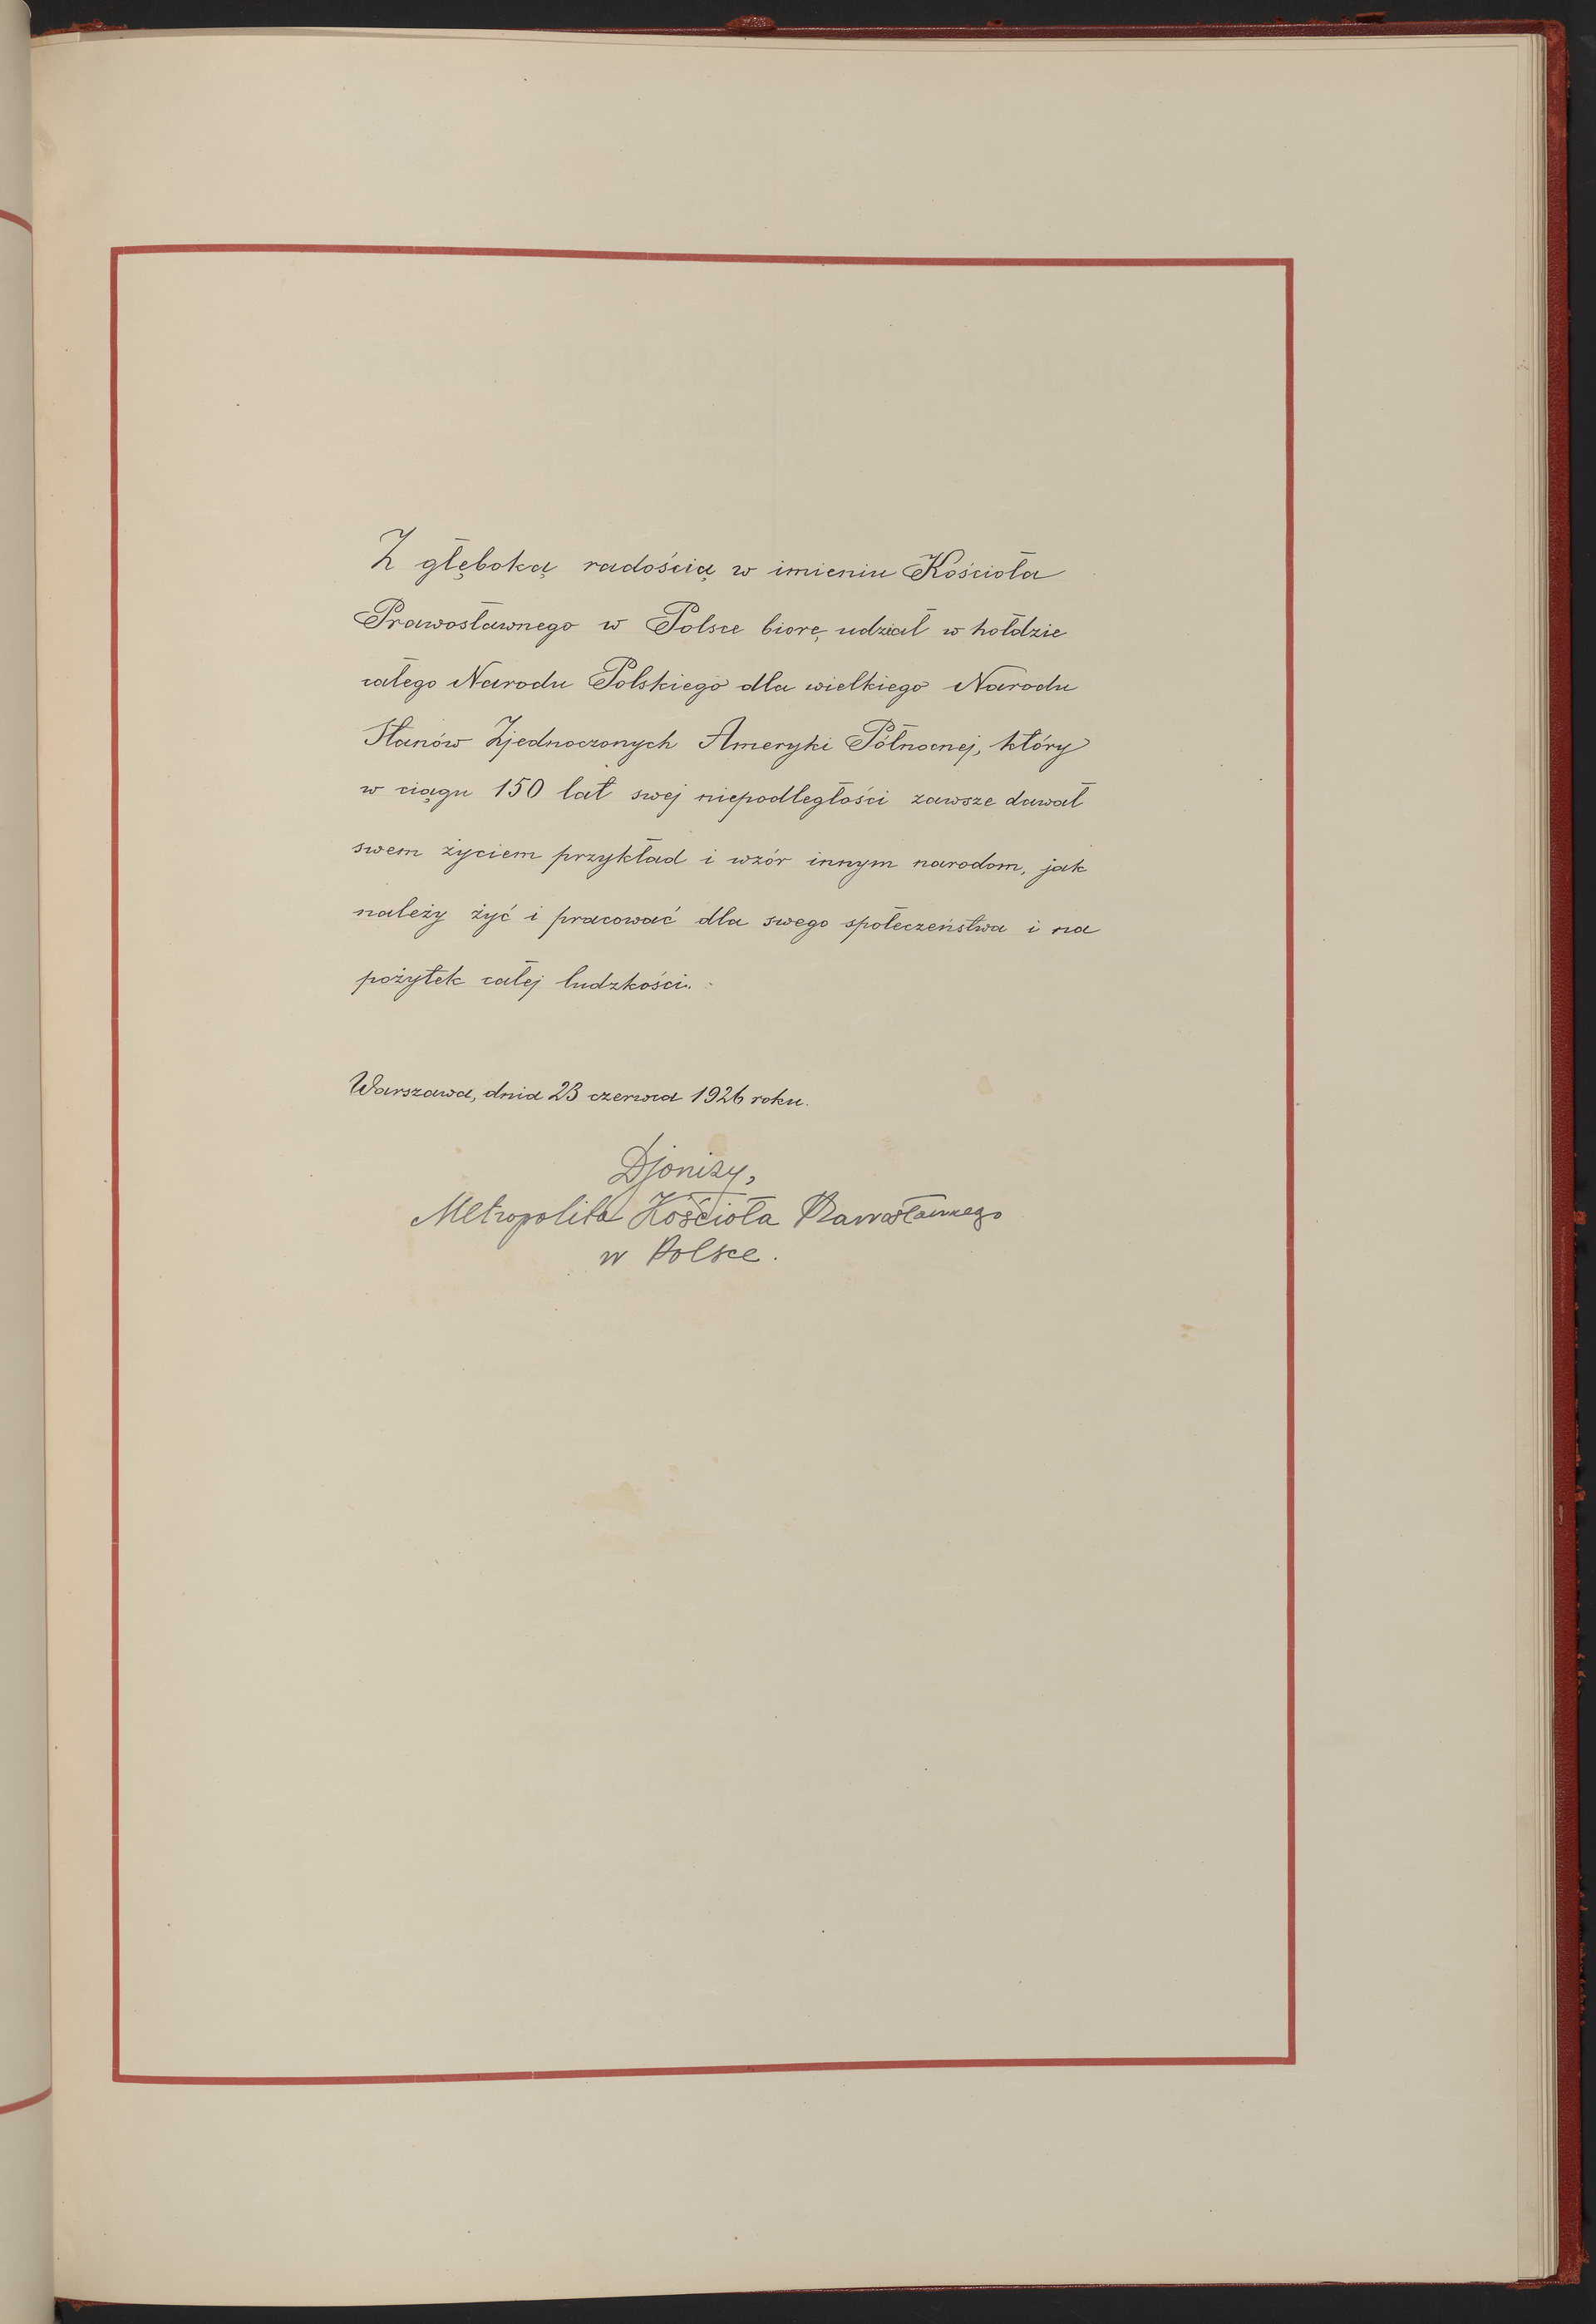 Z głęboką radością w imieniu Kościoła
Prawosławnego w Polsce biorę udział w hołdzie
całego Narodu Polskiego dla wielkiego Narodu
Stanów Zjednoczonych Ameryki Północnej, który
w ciągu 150 lat swej niepodległości zawsze dawał
swem życiem przykład i wzór innym narodom, jak
należy żyć i pracować dla swego społeczeństwa i na
pożytek całej ludzkości.
Warszawa, dnia 23 czerwca 1926 roku.
Djonizy,
Metropolita Kościoła Prawosławnego
w Polsce.